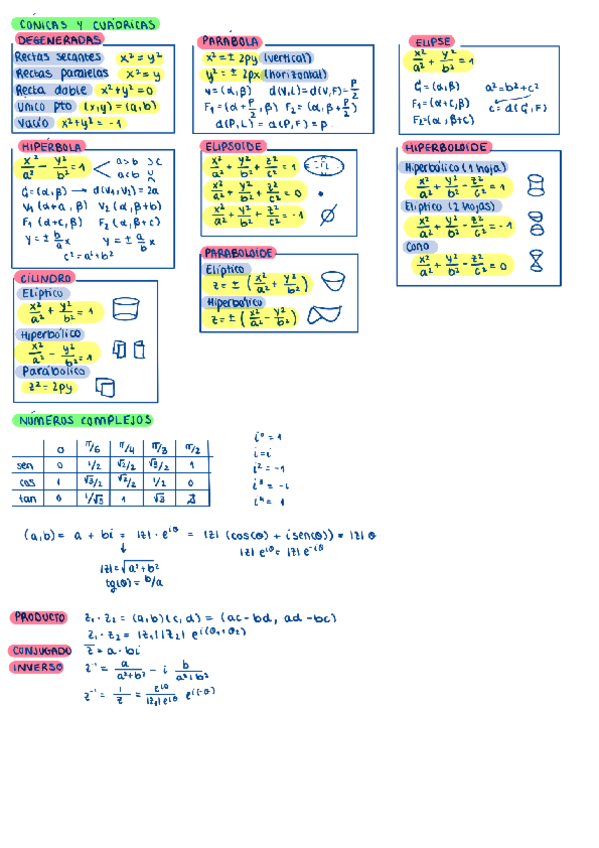 CÓNICAS Y CUÁDRICAS
DEGENERADAS
Rectas secantes x² = y²
Rectas paralelas x² = y
Recta doble x² + y² = 0
Único pto (x,y) = (a,b)
Vacío x² + y² = -1
PARÁBOLA
x² = ± 2py (vertical)
y² = ± 2px (horizontal)
V = (α,β) d(V,L) = d(V,F) = p/2
F₁ = (α + p/2, β) F₂ = (α, β + p/2)
d(P,L) = d(P,F) = p
ELIPSE
x²/a² + y²/b² = 1
G = (α,β) a² = b² + c²
F₁ = (α + c, β) c = d(G,F)
F₂ = (α, β + c)
HIPÉRBOLA
x²/a² - y²/b² = 1 < a>b
a<b
G = (α,β) → d(V₁,V₂) = 2a
V₁ (α + a, β) V₂ (α, β + b)
F₁ (α + c, β) F₂ (α, β + c)
y = ± b/a x y = ± a/b x
c² = a² + b²
ELIPSOIDE
x²/a² + y²/b² + z²/c² = 1
x²/a² + y²/b² + z²/c² = 0
x²/a² + y²/b² + z²/c² = -1
HIPERBOLOIDE
Hiperbólico (1 hoja)
x²/a² + y²/b² - z²/c² = 1
Elíptico (2 hojas)
x²/a² + y²/b² - z²/c² = -1
Cono
x²/a² + y²/b² - z²/c² = 0
PARABOLOIDE
Elíptico
z = ± (x²/a² + y²/b²)
Hiperbólico
z = ± (x²/a² - y²/b²)
CILINDRO
Elíptico
x²/a² + y²/b² = 1
Hiperbólico
x²/a² - y²/b² = 1
Parabólico
z² = 2py
NÚMEROS COMPLEJOS
0 π/6 π/4 π/3 π/2
sen 0 1/2 √2/2 √3/2 1
cos 1 √3/2 √2/2 1/2 0
tan 0 1/√3 1 √3 ∄
i⁰ = 1
i = i
i² = -1
i³ = -i
i⁴ = 1
(a,b) = a + bi = |z| · e^iθ = |z| (cos(θ) + i sen(θ)) = |z| θ
↓ |z| e^iθ = |z| e^-iθ
|z| = √a² + b²
tg(θ) = b/a
PRODUCTO z₁ · z₂ = (a,b)(c,d) = (ac - bd, ad - bc)
z₁ · z₂ = |z₁| |z₂| e^i(θ₁+θ₂)
CONJUGADO z̄ = a - bi
INVERSO z⁻¹ = a/a²+b² - i b/a²+b²
z⁻¹ = 1/z = e^iθ/|z₁|e^iθ e^i(-θ)